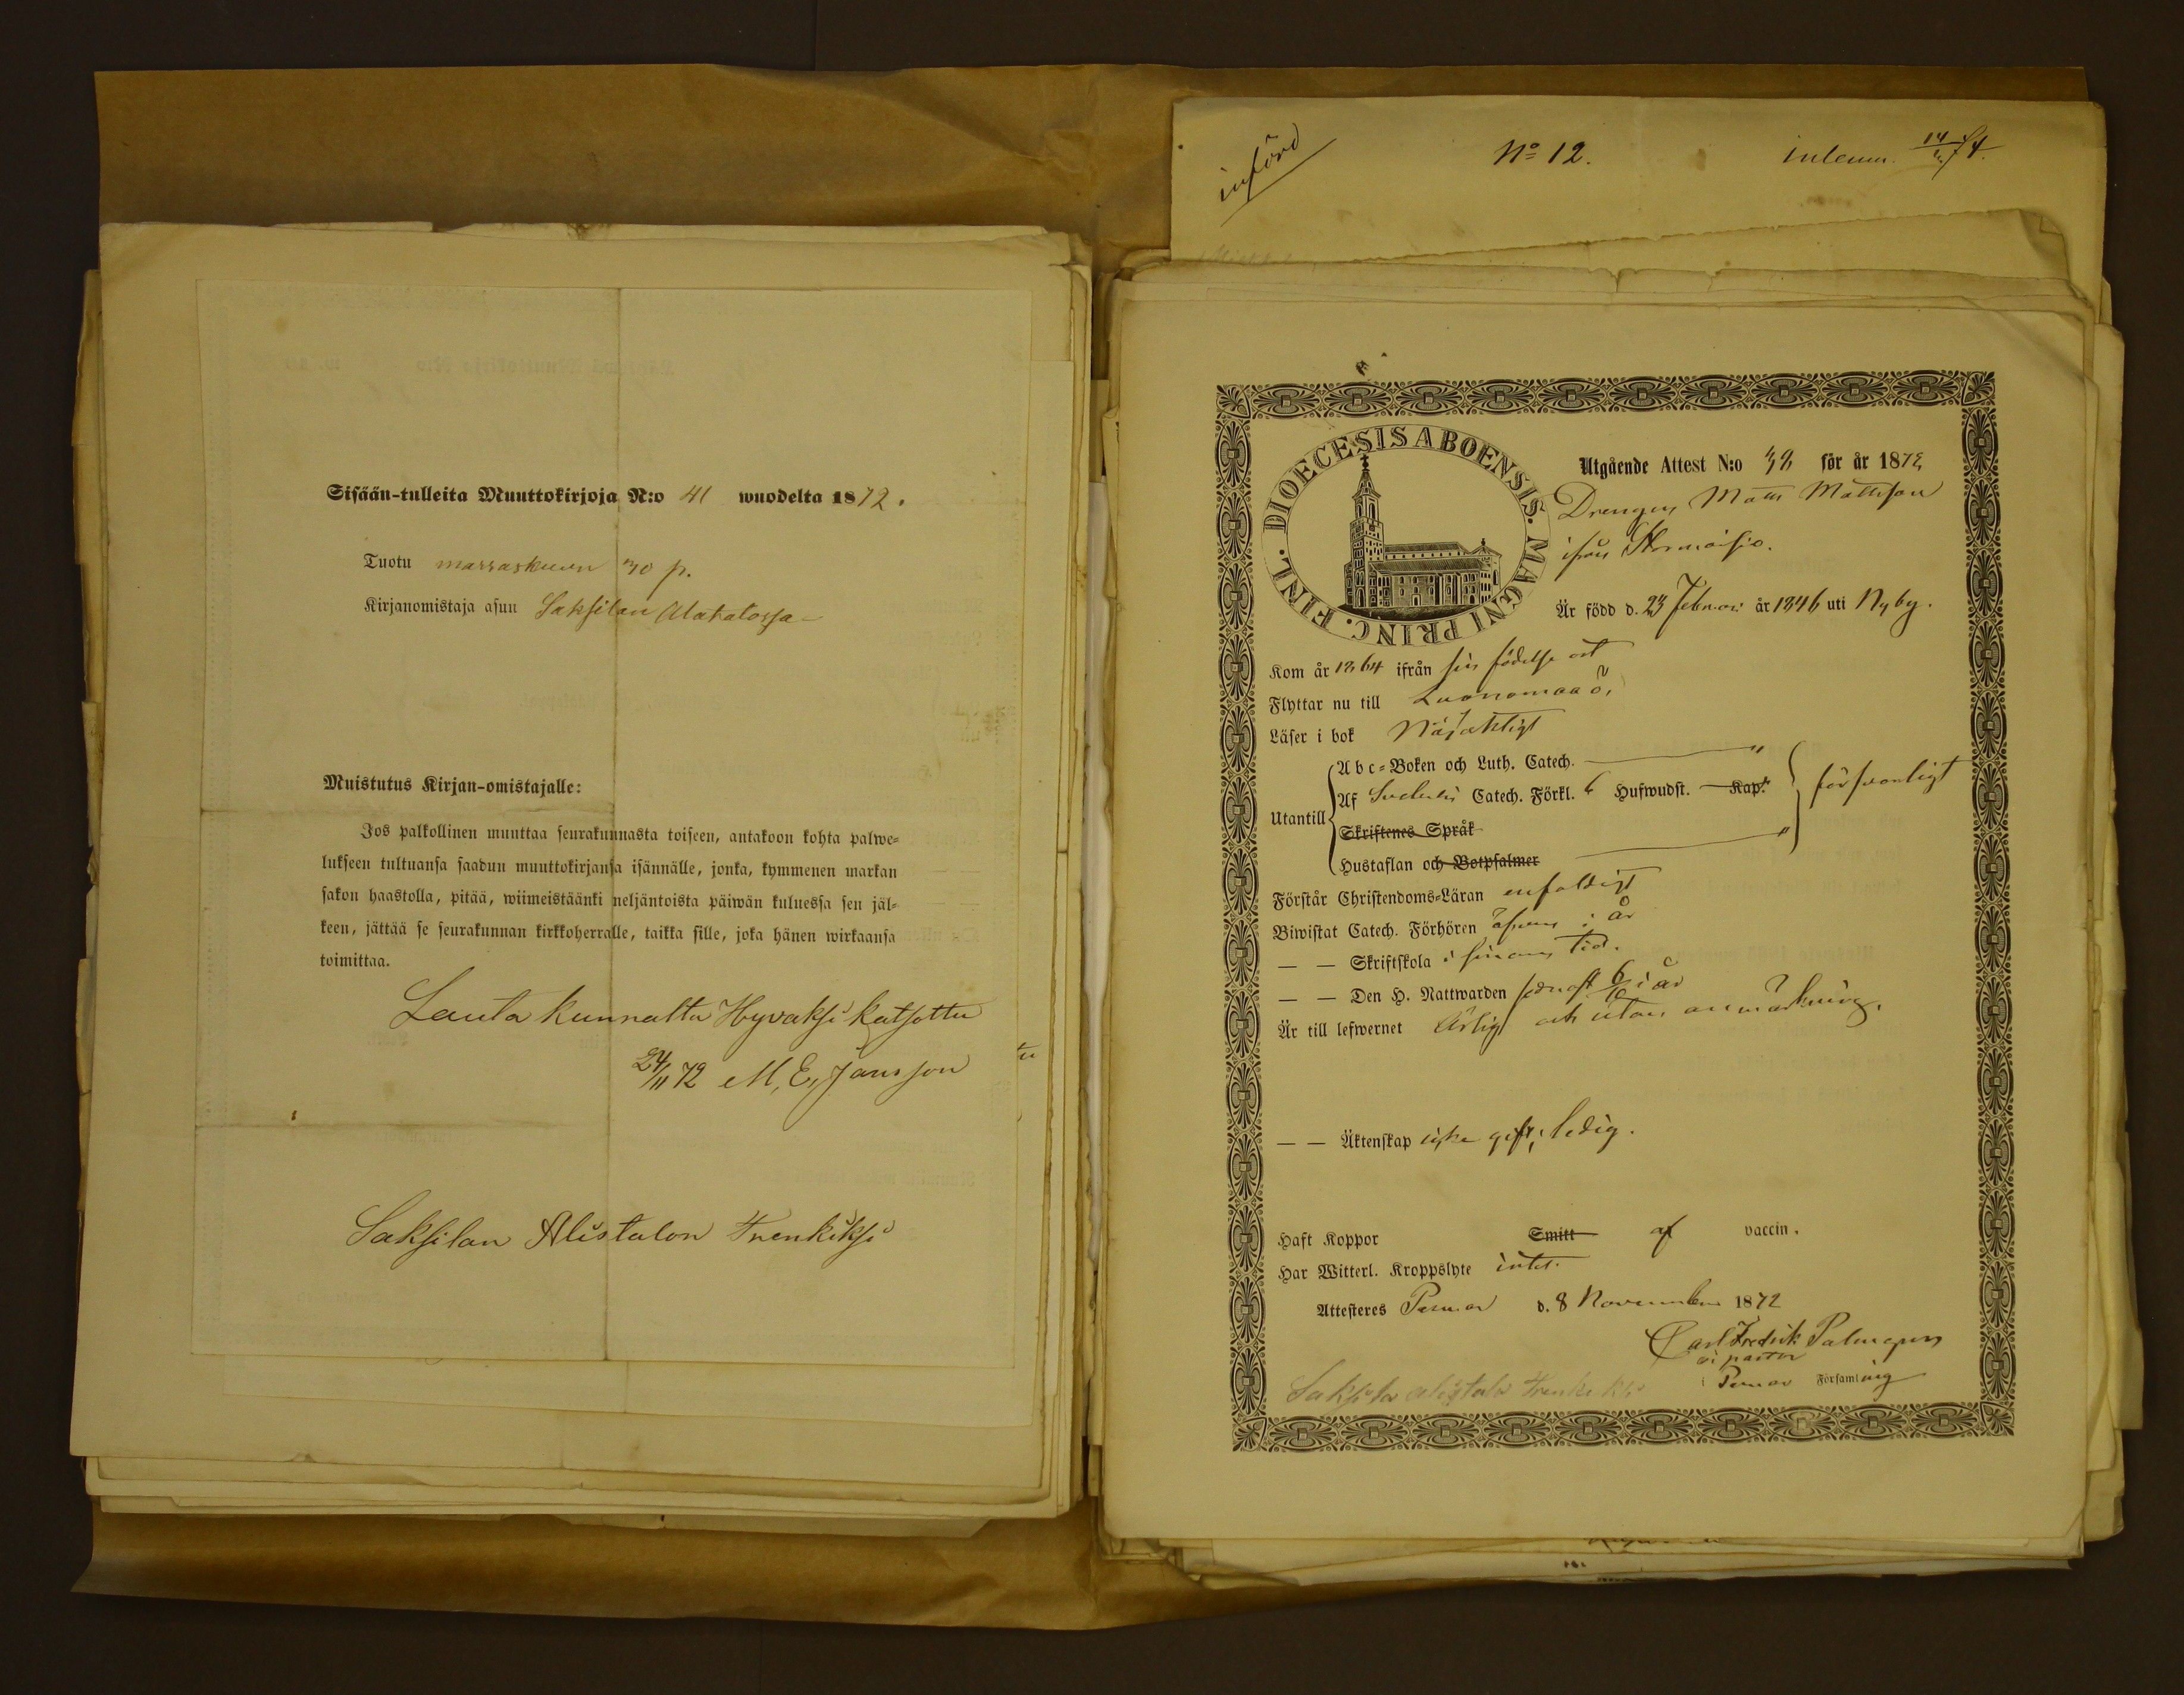 Sisään-tulleita Muuttokirjoja N:o 41 wuodelta 1872.
Tuotu marraskuun 30 p.
Kirjanomistaja asuu Saksilan Alatalossa
Muistutus Kirjan-omistajalle:
Jos palkollinen muuttaa seurakunnasta toiseen, antakoon kohta palwe=
lukseen tultuansa saadun muuttokirjansa isännälle, jonka, kymmenen markan
sakon haastolla, pitää, wiimeistäänki neljäntoista päiwän kuluessa sen jäl=
keen, jättää se seurakunnan kirkkoherralle, taikka sille, joka hänen wirkaansa
toimittaa.
Lautakunnalta Hyvaksi katsottu
24/11 72 M, E, Jansson
Saksilan Alistalon Trenkiksi
införd
No 12.
DIOECESIS ABOENSIS. MAGNI PRINC. FINL.
Utgående Attest N:o 32 för år 1872
Drengen Matts Mattsson
ifrån
Är född d. 23 Februari år 1846 uti Nyby.
Kom år 1864 ifrån sin födelse ort
Flyttar nu till Luonomaa ö,
Läser i bok Nöjaktigt
Utantill
Abc=Boken och Luth. Catech. "
Af Svebelii Catech. Förkl. 6 Hufwudst. Kap.
Skriftenes Språk "
Hustaflan och Botpsalmer
försvarligt
Förstår Christendoms=Läran enfaldigt
Biwistat Catech. Förhören äfven i år
— — Skriftskola i sinom tid.
— — Den H. Nattwarden senast 6/10 i år
Är till lefwernet Ärlig och utan anmärkning.
— — Äktenskap icke gift, ledig.
Haft Koppor Smitt af vaccin.
Har Witterl. Kroppslyte intet.
Attesteres Pemar d. 8 November 1872
Carl Fredrik Palmgren
vi pastor
i Pemar Församling
Saksila alistalo Trenkiksi